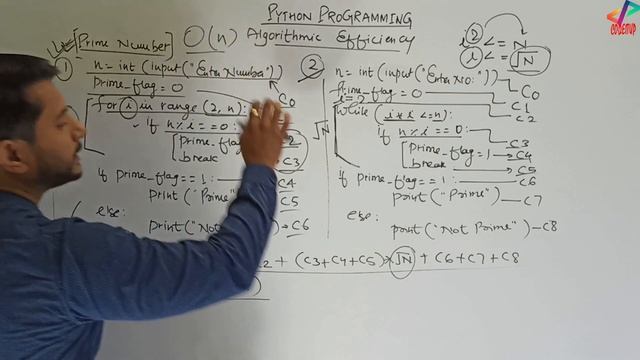 PYTHON PROGRAMMING
CODEITUP
[Prime Number] O(n) Algorithmic Efficiency
i² <= N
i <= √N
1
n = int(input("Enter Number"))
prime_flag = 0
C0
for i in range(2, n):
if n % i == 0:
prime_flag
break
C3
if prime_flag == 1: C4
print("Prime") C5
else:
print("Not Prime") C6
√N
2
n = int(input("Enter No:")) C0
prime_flag = 0 C1
i = 2 C2
while (i * i <= n):
if n % i == 0: C3
prime_flag = 1 C4
break C5
if prime_flag == 1: C6
print("Prime") C7
else:
print("Not Prime") C8
2 + (C3+C4+C5) * √N + C6 + C7 + C8